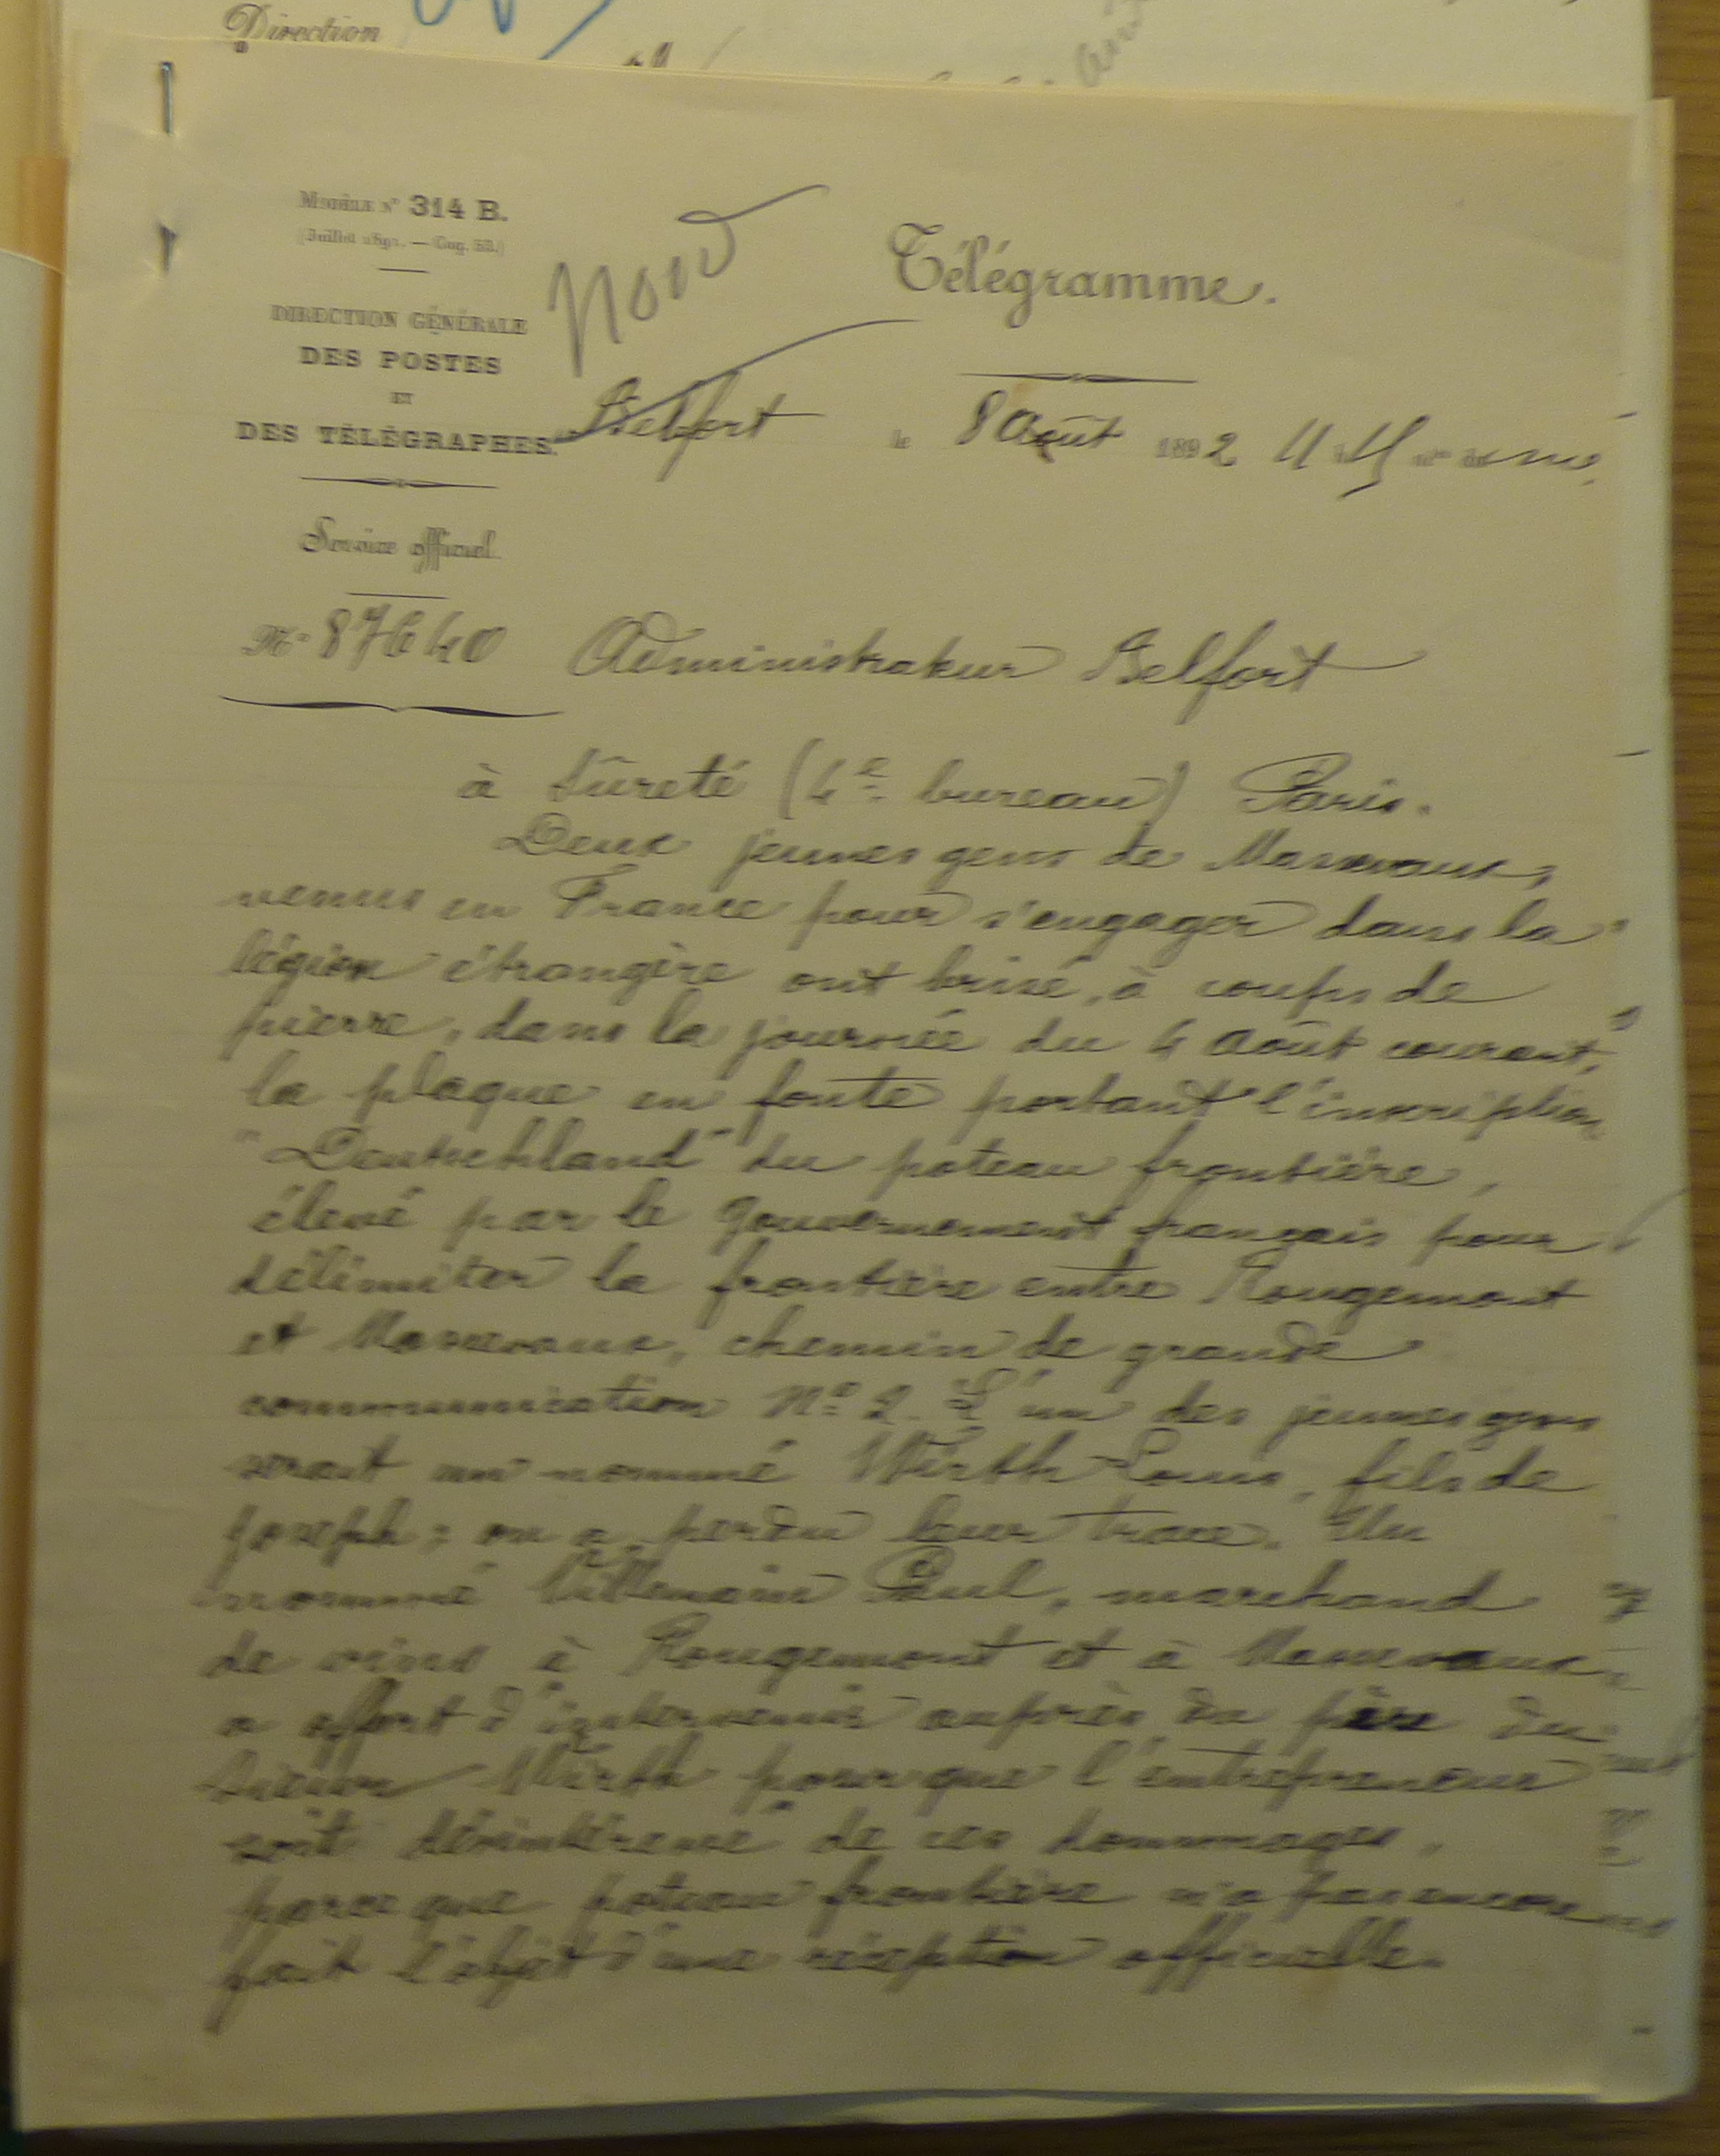 Direction
Modèle N° 314 B.
(Juillet 1891. — Cog. 53.)
DIRECTION GÉNÉRALE
DES POSTES
ET
DES TÉLÉGRAPHES.
Service officiel.
Télégramme.
Belfort le 8 Août 1892
N° 87640 Administrateur Belfort
à Sûreté (4e bureau) Paris.
Deux jeunes gens de Massevaux,
venus en France pour s'engager dans la
légion étrangère ont brisé, à coups de
pierre, dans la journée du 4 août courant,
la plaque en fonte portant l'inscription
"Deutschland" du poteau frontière,
élevé par le Gouvernement français pour
délimiter la frontière entre Rougemont
et Massevaux, chemin de grande
communication N° 2. L'un des jeunes gens
serait un nommé Wirth Louis, fils de
Joseph ; on a perdu leur trace. Un
nommé Villemain Paul, marchand
de vins à Rougemont et à Massevaux
a offert d'intervenir auprès du père du
sieur Wirth pour que l'entrepreneur
soit désintéressé de ces dommages,
parce que poteau frontière n'a pas encore
fait l'objet d'une réception officielle.